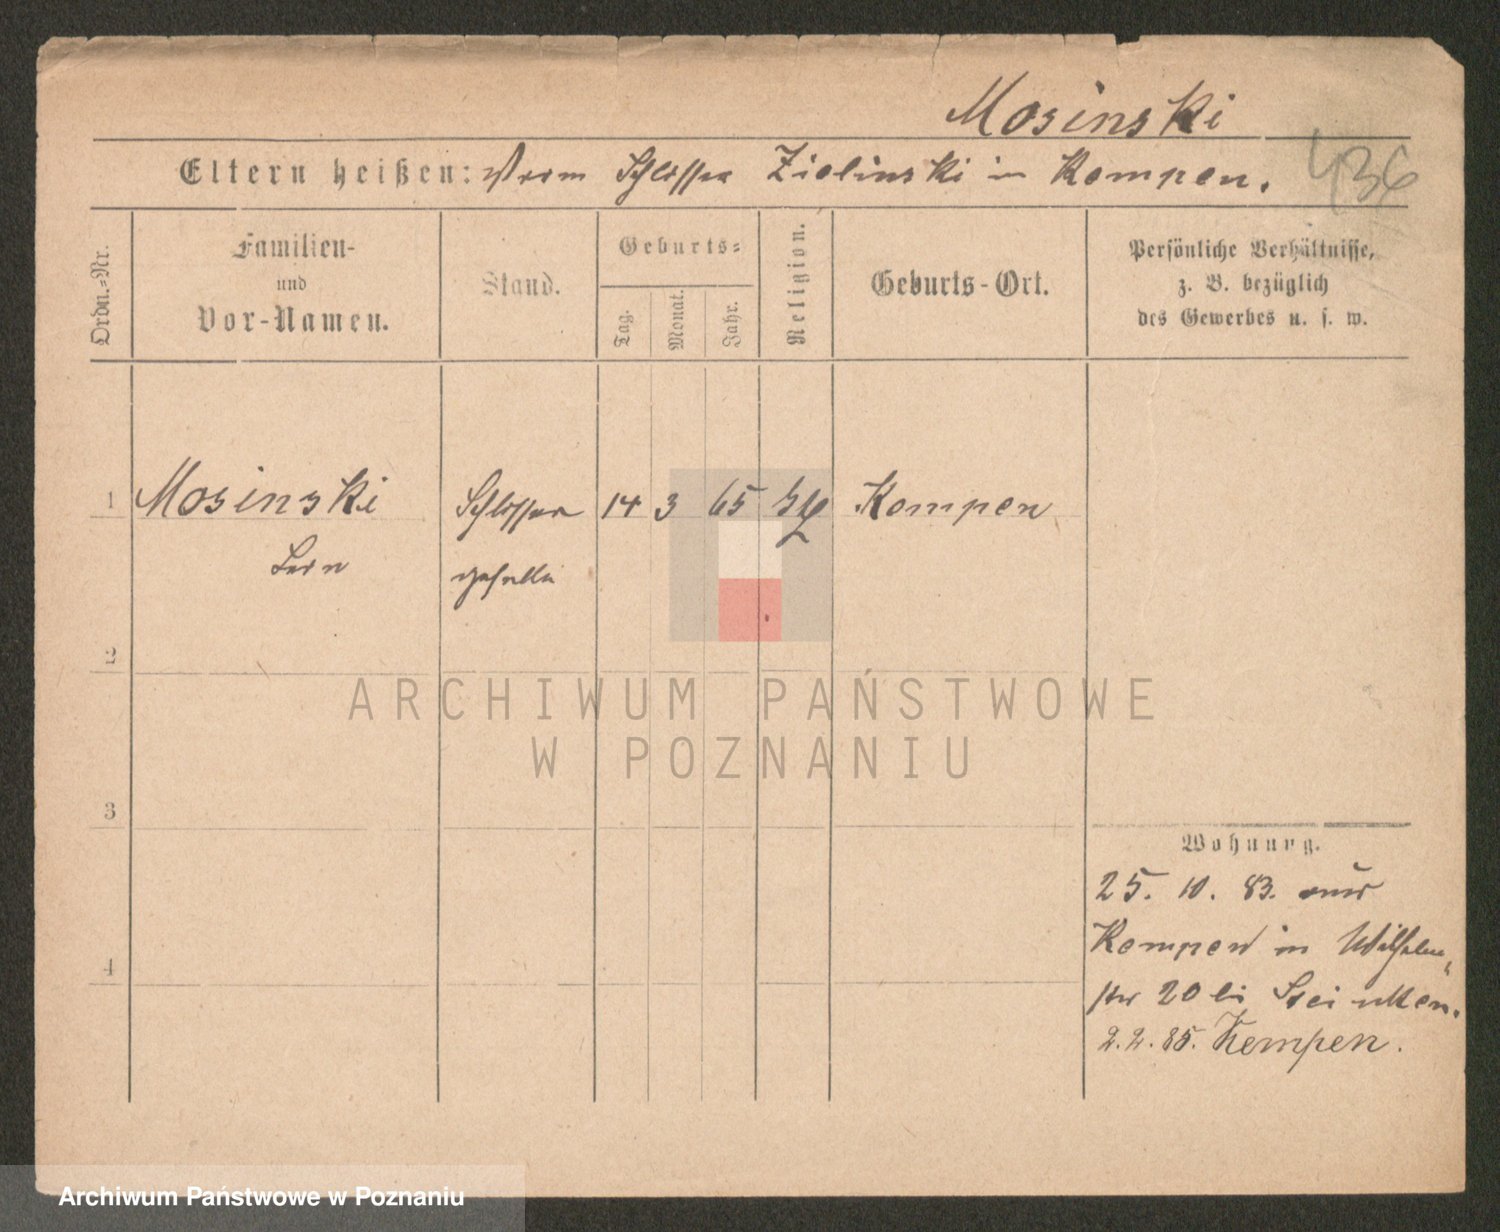 Mosinski
Eltern heißen: Vorm Schlosser Zielinski in Kempen.
436
Ordn.-Nr.
Familien-
und
Vor-Namen.
Stand.
Geburts-
Tag.
Monat.
Jahr.
Religion.
Geburts-Ort.
Persönliche Verhältnisse,
z. B. bezüglich
des Gewerbes u. s. w.
1 Mosinski Schlosser 14 3 65 Kempen
Leon geselle
2
3
4
Wohnung.
25. 10. 83. aus
Kempen in Wilhelm-
str 20 bei
2. 2. 85. Kempen.
ARCHIWUM PAŃSTWOWE
W POZNANIU
Archiwum Państwowe w Poznaniu